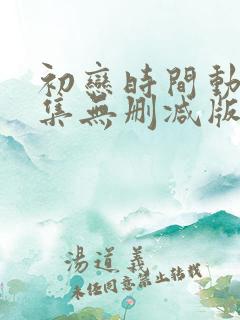 初戀時間動
集無刪減版
湯道義
未經同意禁止轉載